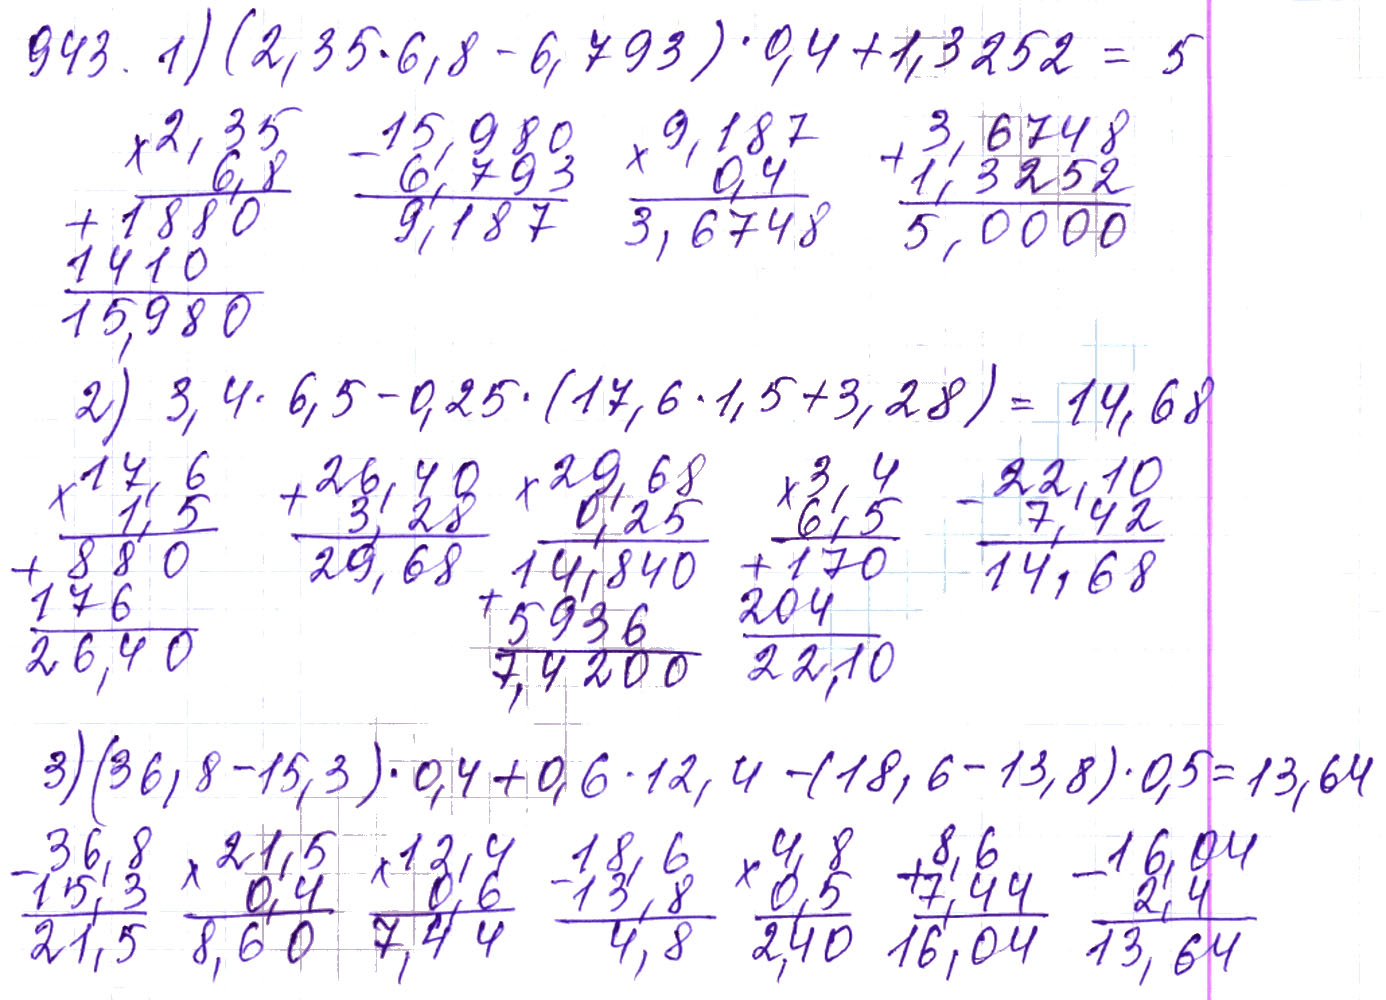 943. 1) (2,35·6,8-6,793)·0,4+1,3252 = 5
×2,35 -15,980 ×9,187 +3,6748
6,8 6,793 0,4 1,3252
+1880 9,187 3,6748 5,0000
1410
15,980
2) 3,4·6,5-0,25·(17,6·1,5+3,28) = 14,68
×17,6 +26,40 ×29,68 ×3,4 -22,10
1,5 3,28 0,25 6,5 7,42
+880 29,68 14,840 +170 14,68
176 +5936 204
26,40 7,4200 22,10
3) (36,8-15,3)·0,4+0,6·12,4-(18,6-13,8)·0,5=13,64
-36,8 ×21,5 ×12,4 -18,6 ×4,8 +8,6 -16,04
15,3 0,4 0,6 13,8 0,5 7,44 2,4
21,5 8,60 7,44 4,8 2,40 16,04 13,64